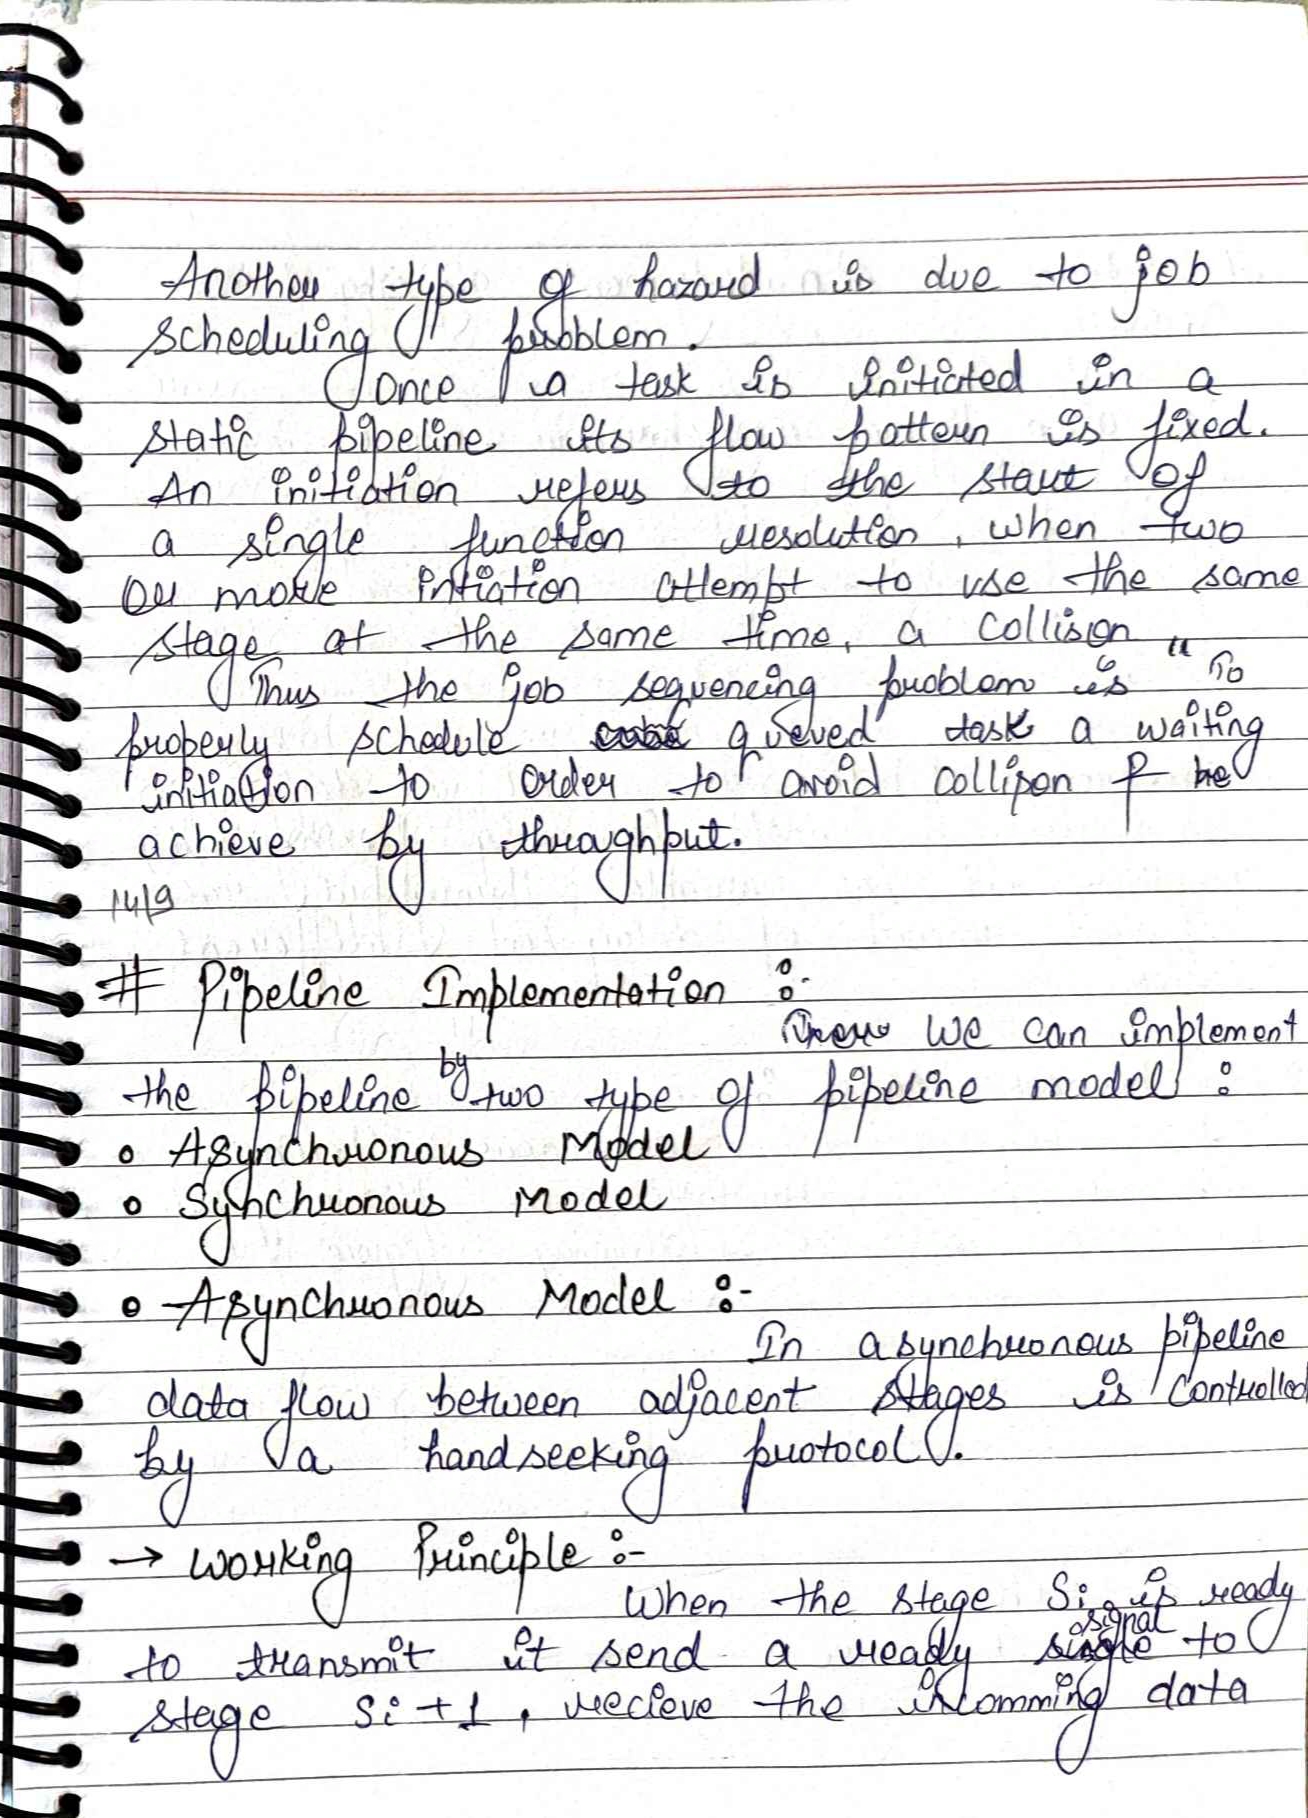 Another type of hazard is due to job
scheduling problem.
Once a task is initiated in a
static pipeline its flow pattern is fixed.
An initiation refers to the start of
a single function resolution, when two
or more intiation attempt to use the same
stage at the same time, a collision
Thus the job sequencing problem is " To
properly schedule queved task a waiting
initiation to order to avoid collison & be
achieve by throughput.
14/9
# Pipeline Implementation :-
There we can implement
the pipeline by two type of pipeline model :
• Asynchronous Model
• Synchronous Model
• Asynchronous Model :-
In asynchronous pipeline
data flow between adjacent stages is controlled
by a handseeking protocol.
→ Working Principle :-
When the stage Si is ready
to transmit it send a ready signal to
stage Si+1, recieve the incomming data